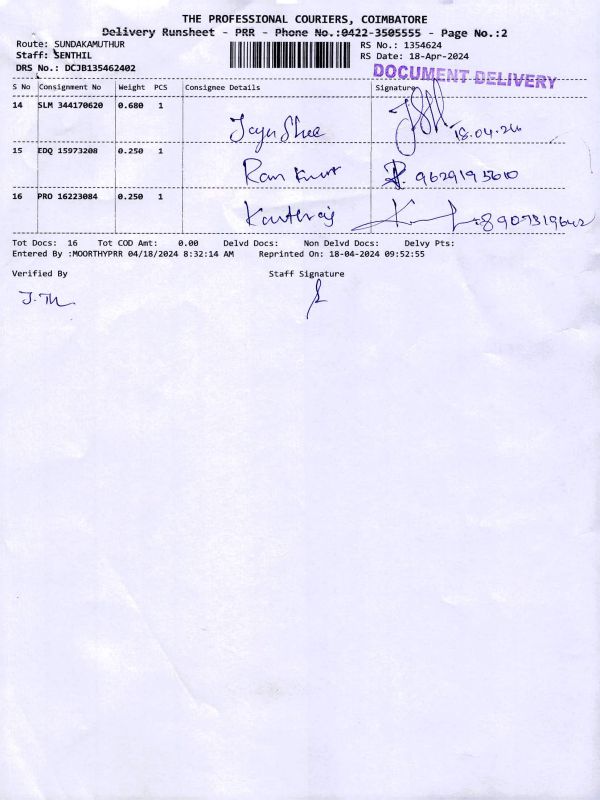 THE PROFESSIONAL COURIERS, COIMBATORE
Delivery Runsheet - PRR - Phone No.:0422-3505555 - Page No.:2
Route: SUNDAKAMUTHUR RS No.: 1354624
Staff: SENTHIL RS Date: 18-Apr-2024
DRS No.: DCJB135462402 DOCUMENT DELIVERY
S No Consignment No Weight PCS Consignee Details Signature
14 SLM 344170620 0.680 1
Jaya Shree 18.04.24
15 EDQ 15973208 0.250 1
Ram Kumar 9629195610
16 PRO 16223084 0.250 1
8907319642
Tot Docs: 16 Tot COD Amt: 0.00 Delvd Docs: Non Delvd Docs: Delvy Pts:
Entered By :MOORTHYPRR 04/18/2024 8:32:14 AM Reprinted On: 18-04-2024 09:52:55
Verified By Staff Signature